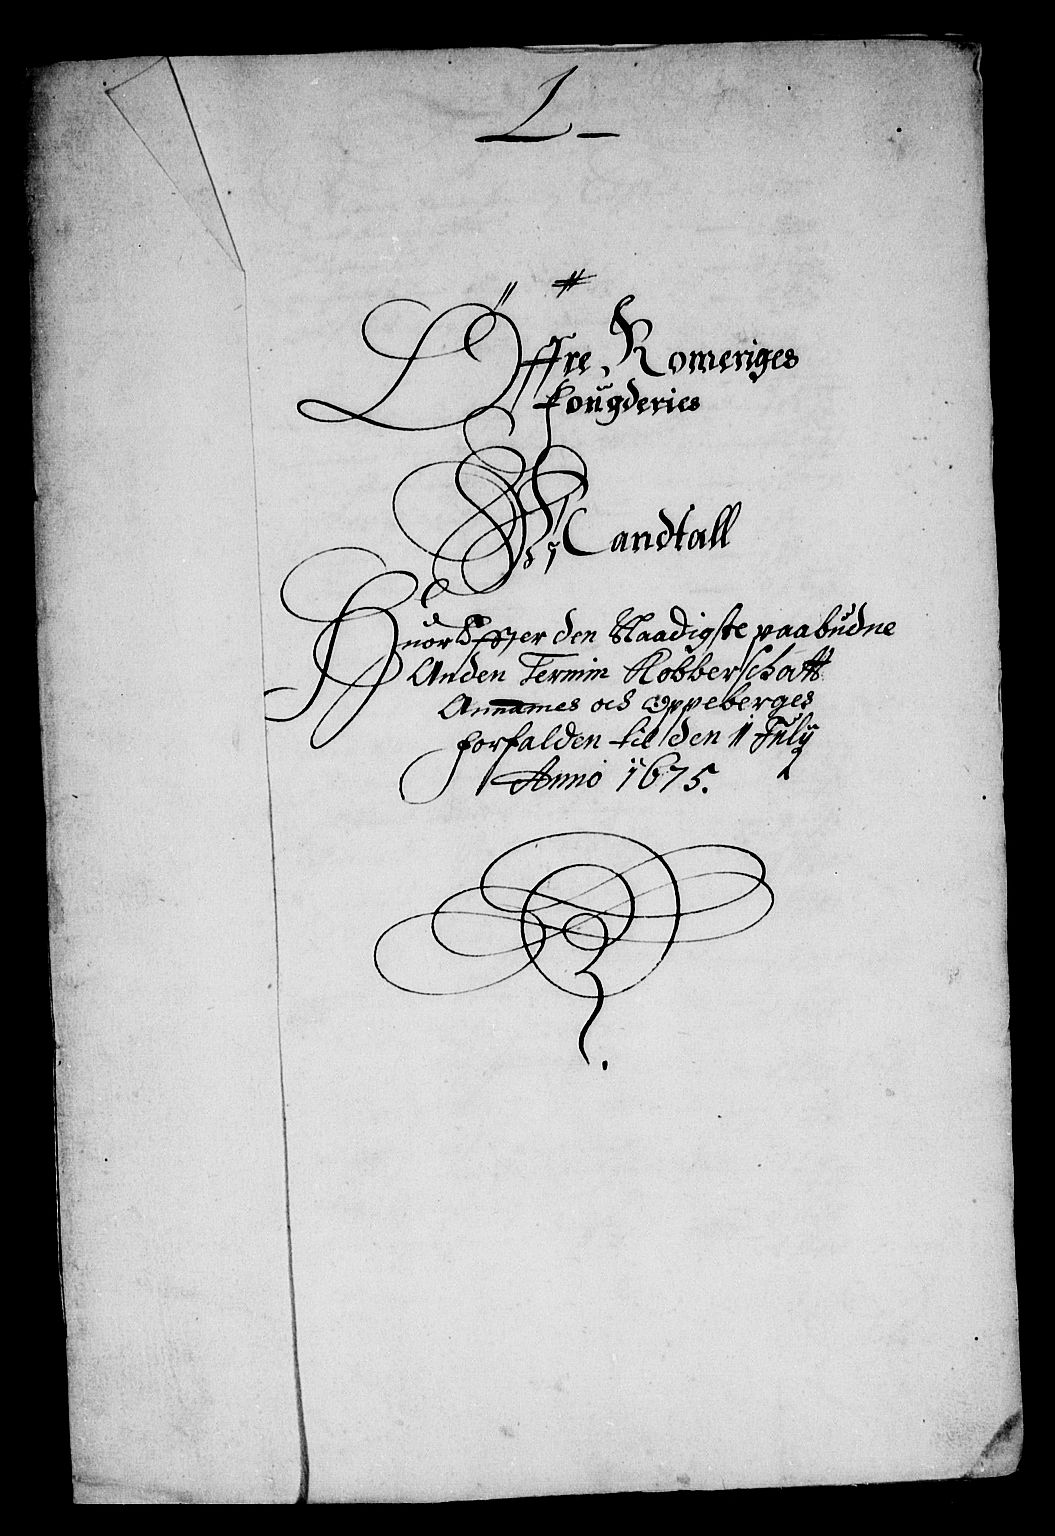 L
Öffre Romeriges
fougderies
Mandtall
Huor Effter den Naadigste paabudne
Anden Termin Kobberschatt
Annames och Oppeberges
forfalden til den 1 July
Anno 1675.